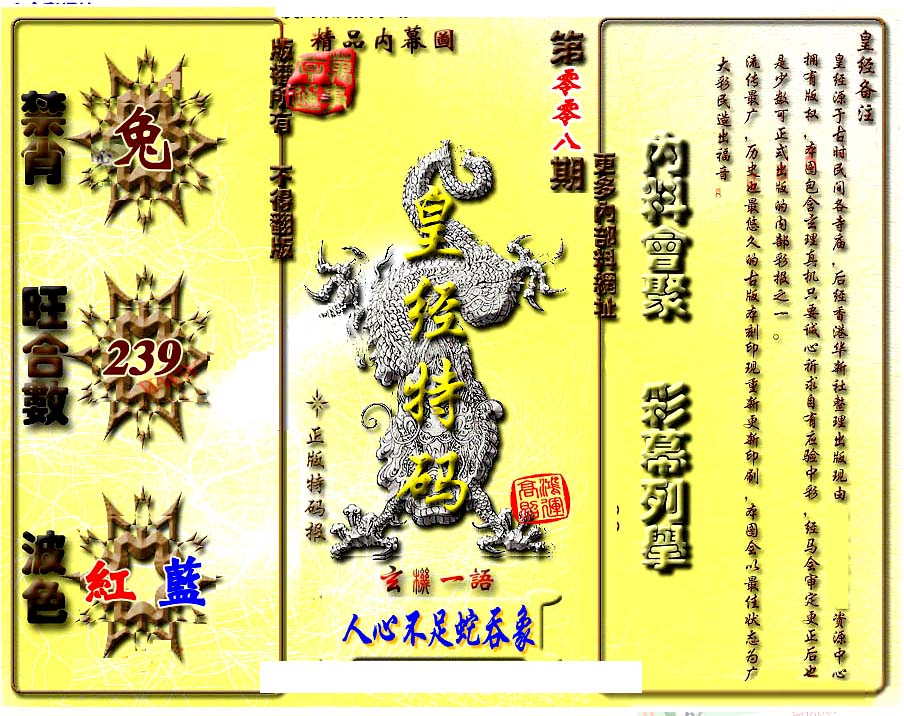 皇经备注
皇经源于古时民间各寺庙，后经香港华新社整理出版现由
资源中心
拥有版权，本图包含玄理真机只要诚心祈求自有应验中彩，经马会审定更正后也
是少数可正式出版的内部彩报之一。
流传最广，历史也最悠久的古版本刻印现重新更新印刷，本图会以最佳状态为广
大彩民造出福音。
内料會聚
彩幕列擧
更多內部料網址
精品内幕圖
第零零八期
皇经特码
正版特码报
鴻運高照
玄機一語
人心不足蛇吞象
版權所有 不得翻版
禁肖
兔
旺合數
239
波色
紅 藍